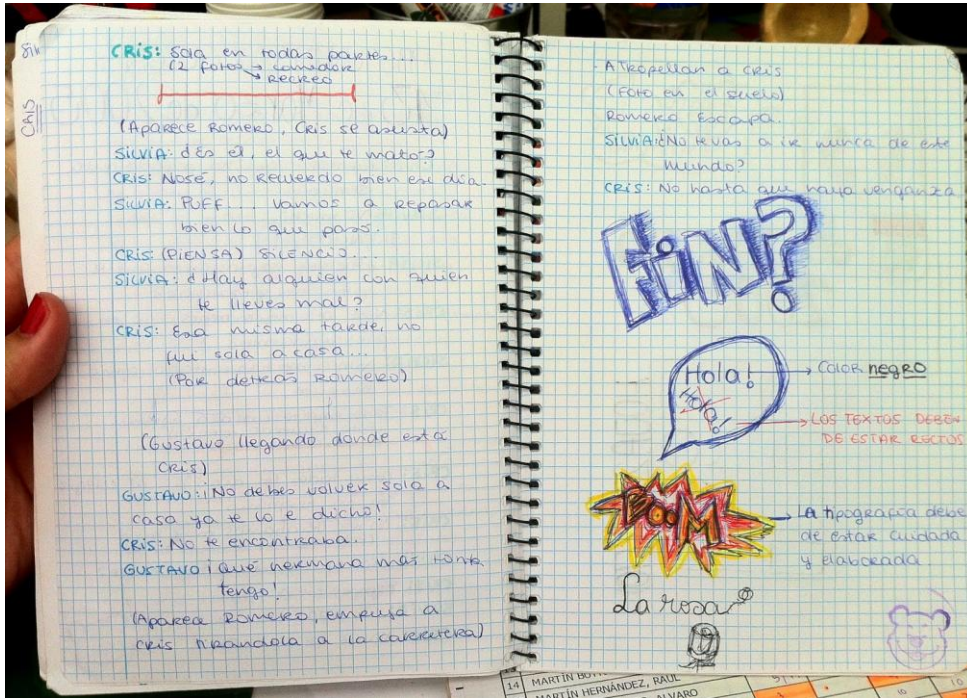 Silv
CRIS
CRIS: Sola en todas partes...
(2 fotos → comedor
↘ RECREO
(Aparece Romero, Cris se asusta)
SILVIA: ¿Es él, el que te mato?
CRIS: NOSÉ, no Recuerdo bien ese día.
SILVIA: PUFF... vamos a Repasar
bien lo que paso.
CRIS: (PIENSA) SILENCIO...
SILVIA: ¿Hay alguien con quien
te lleves mal?
CRIS: Esa misma tarde, no
fui sola a casa...
(Por detrás Romero)
(Gustavo llegando donde esta
Cris)
GUSTAVO: ¡No debes volver sola a
casa ya te lo e dicho!
CRIS: No te encontraba.
GUSTAVO: ¡Qué hermana más tonta
tengo!
(Aparece Romero, empuja a
Cris tirandola a la carretera)
Atropellan a Cris
(Foto en el suelo)
Romero Escapa.
SILVIA: ¿No te vas a ir nunca de este
mundo?
CRIS: No hasta que haya venganza
FIN?
Hola!
Hola!
→ Color negro
→ LOS TEXTOS DEBEN
DE ESTAR RECTOS
BOOM
→ La tipografía debe
de estar cuidada
y elaborada
La rosa
14 MARTÍN
MARTÍN HERNÁNDEZ, RAÚL
ALVARO
10